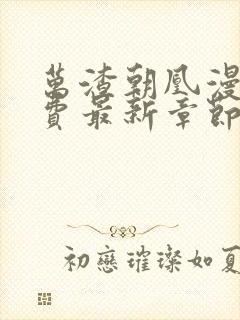 萬渣朝凰漫
費最新章節
初戀璀璨如夏